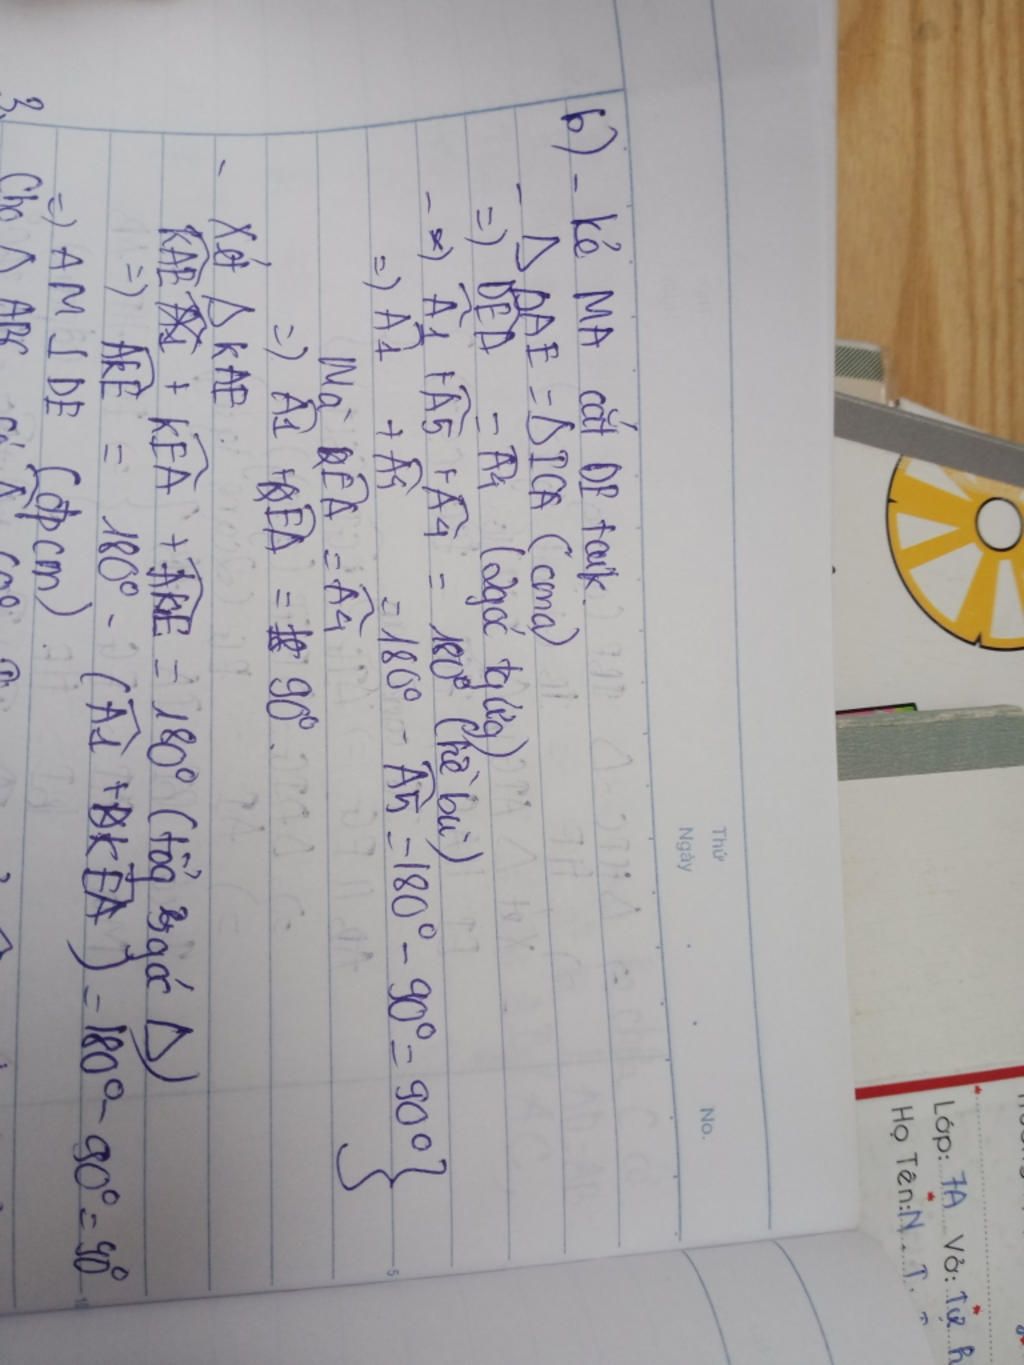 Thứ
Ngày
No.
b) - Kẻ MA cắt DE tại K.
- Δ DAE = Δ ICA (cma)
=) DEA = A4 (2góc tg ứng)
- *) A1 + A5 + A4 = 180° (kề bù)
=) A1 + A4 = 180° - A5 = 180° - 90° = 90°
Mà DEA = A4
=) A1 + DEA = 90°.
- Xét Δ KAE
KAE + KEA + AKE = 180° (tổg 3góc Δ)
=) AKE = 180° - (A1 + KEA) = 180° - 90° = 90°
=) AM ⊥ DE (đpcm)
3,
Cho Δ ABC có
Lớp: 7A Vở: Tự h
Họ Tên: N. T.
5
10